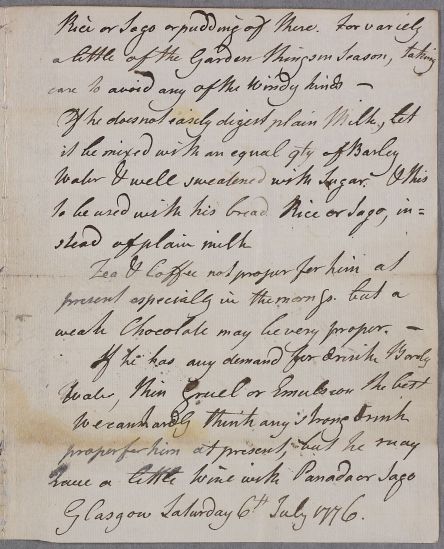 Rice or Sago or pudding of these. for variety
a little of the Garden things in Season, taking
care to avoid any of the Windy kinds —
If he does not easely digest plain Milk, Let
it be mixed with an equal qty of Barley
Water & well sweatened with Sugar. & this
to be used with his bread Rice or Sago, in=
stead of plain milk
Tea & Coffee not proper for him at
present especially in the morngs. but a
weak Chocolate may be very proper. —
If he has any demand for drink Barley
Water, thin Gruel or Emulsion the best
We can hardly think any strong drink
proper for him at present, but he may
have a little wine with Panada or Sago
Glasgow Saturday 6th July 1776.